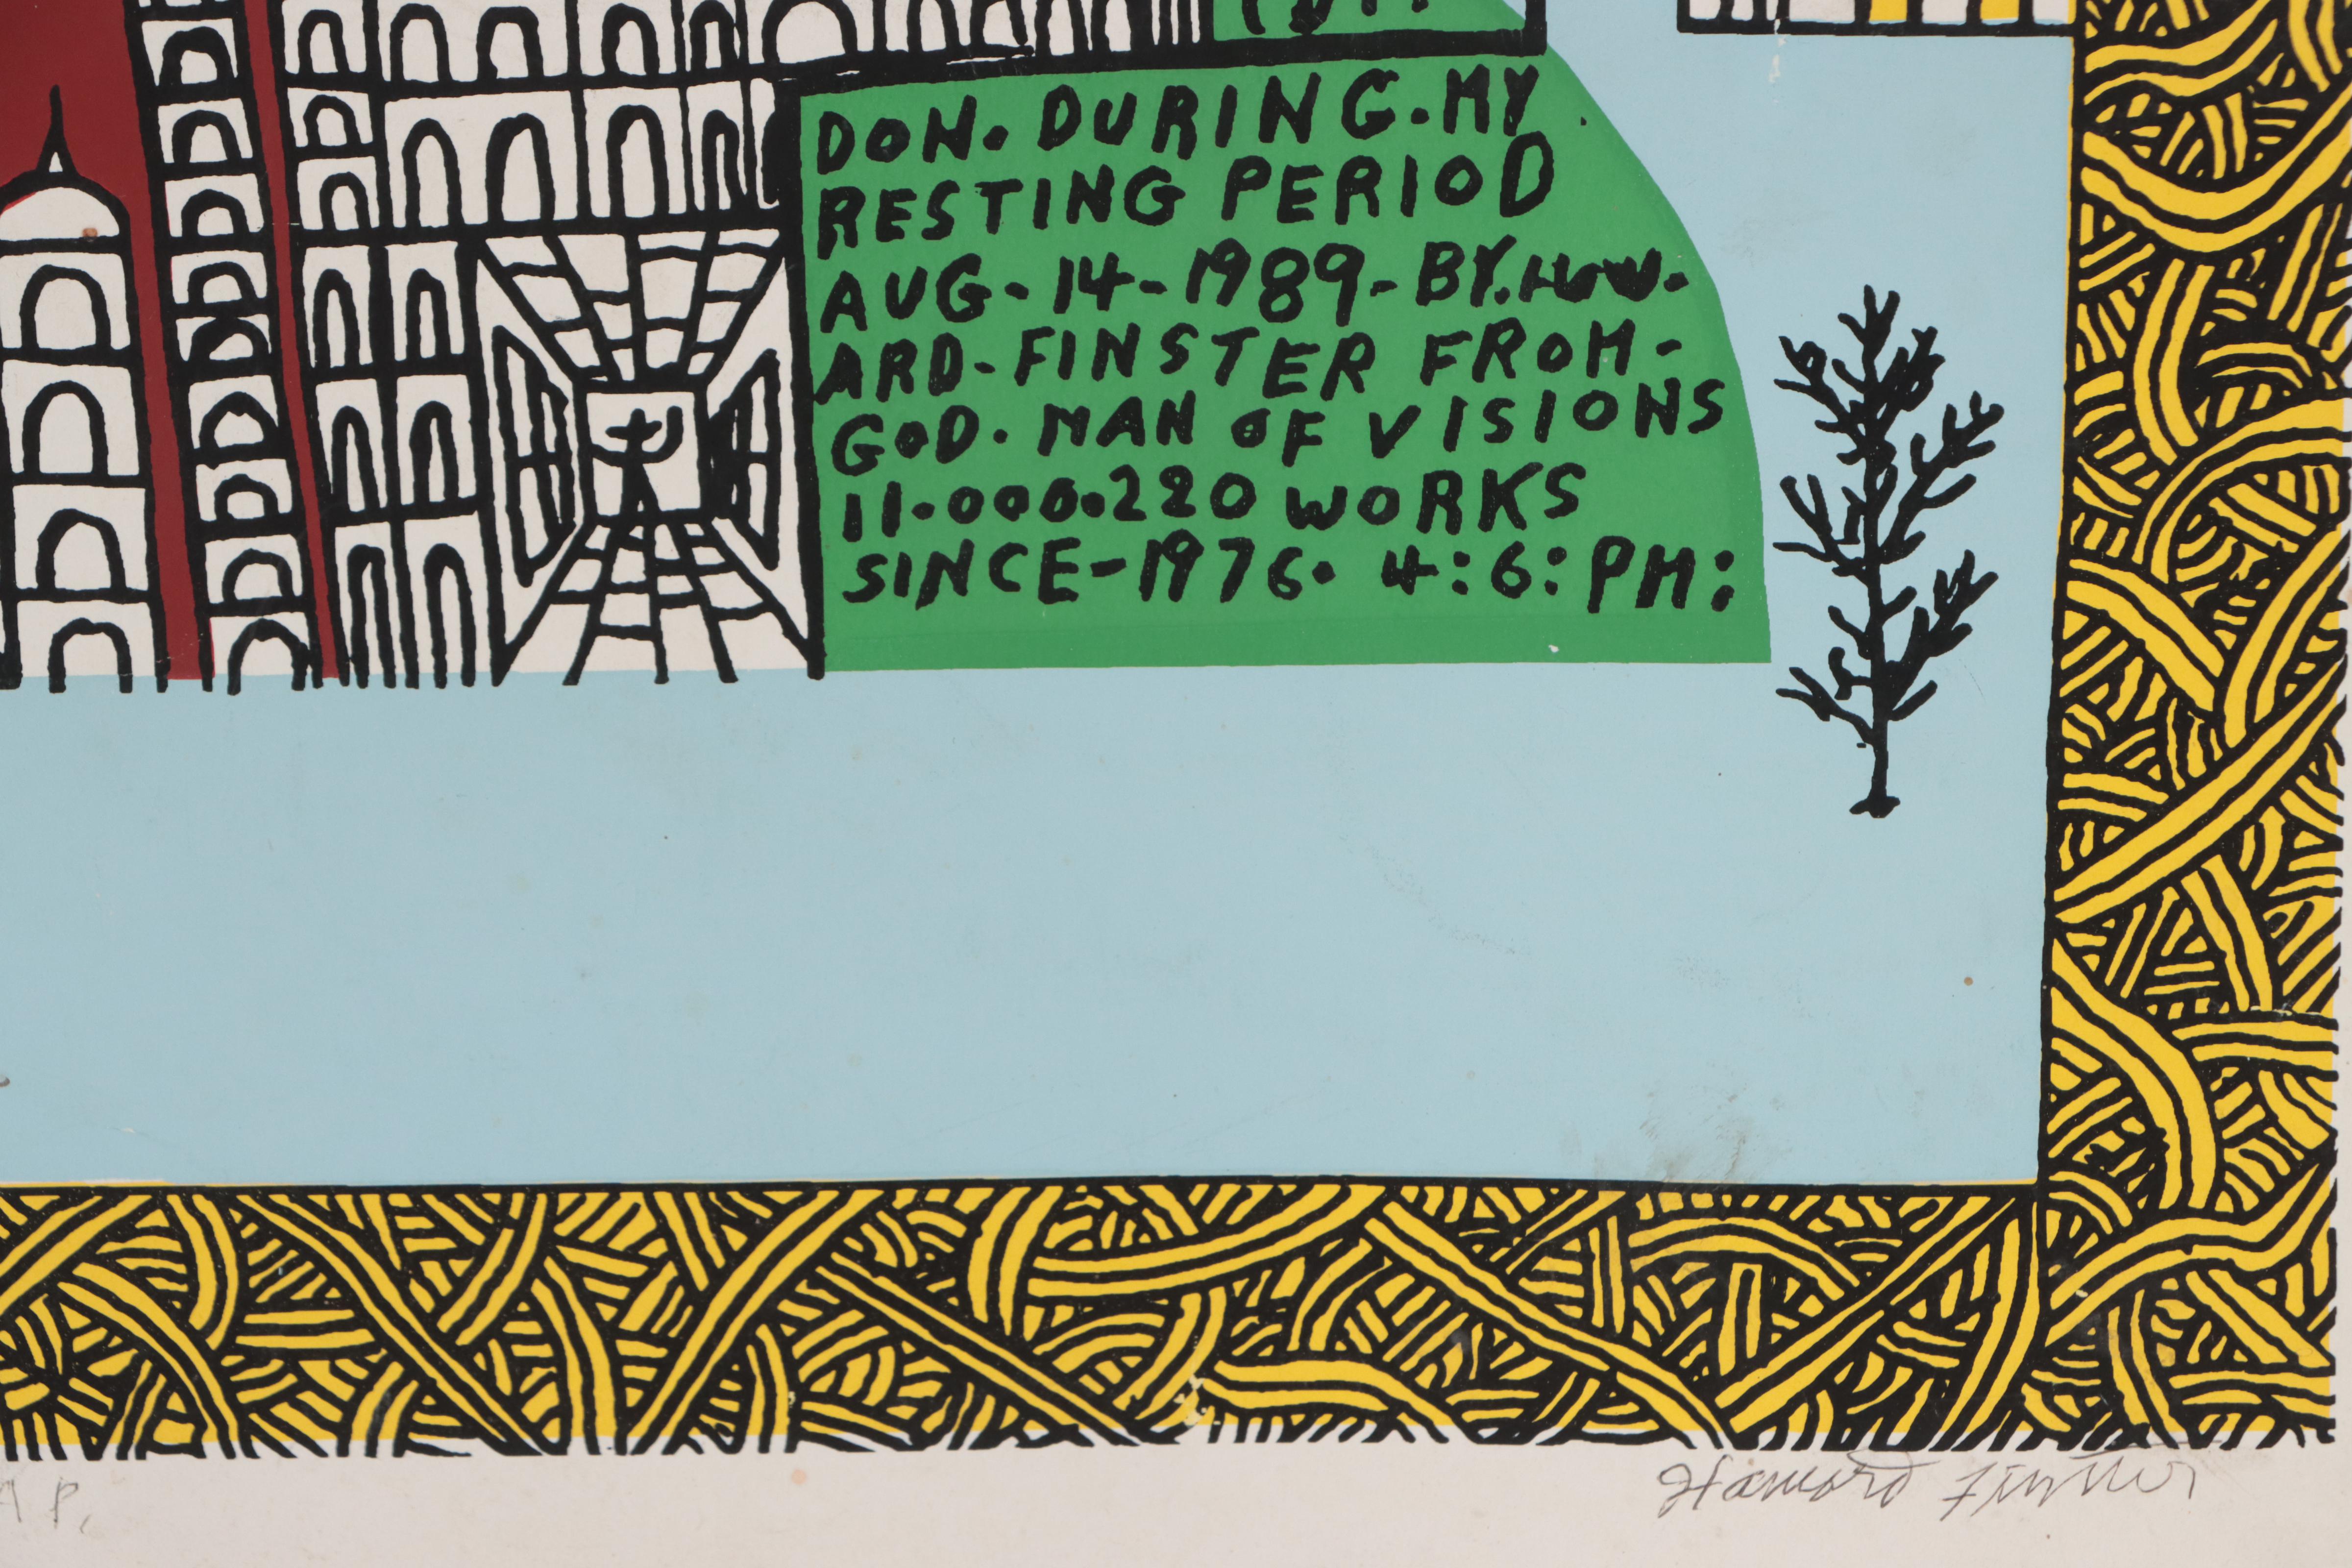 DON. DURING. MY
RESTING PERIOD
AUG-14-1989-BY. HOW-
ARD-FINSTER FROM-
GOD. MAN OF VISIONS
11.000.220 WORKS
SINCE-1976. 4:6:PM:
A P,
Howard Finster